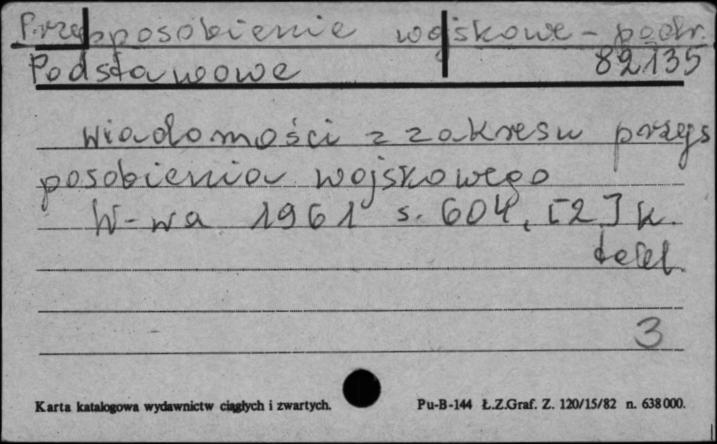 Przysposobienie wojskowe - podr.
Podstawowe 82135
wiadomości z zakresu przys
posobienia wojskowego
W-wa 1961 s. 604, [2] k.
tabl.
3
Karta katalogowa wydawnictw ciągłych i zwartych. Pu-B-144 Ł.Z.Graf. Z. 120/15/82 n. 638 000.